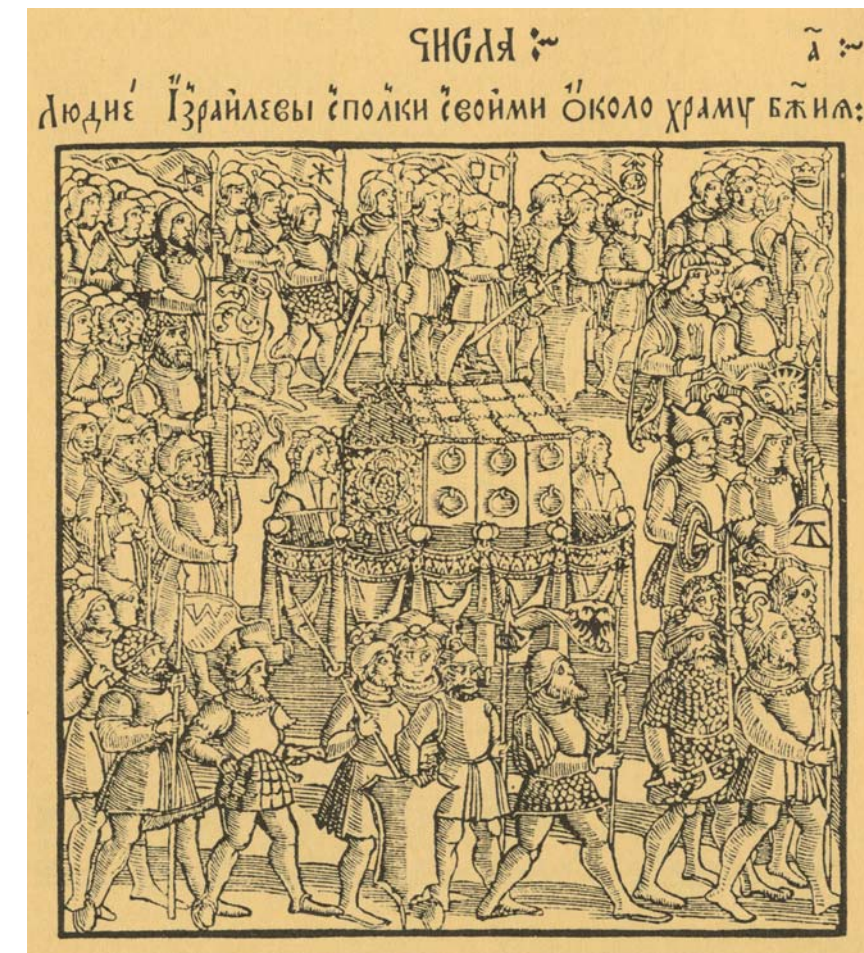 ЧИСЛА :~ а҃ :~
Людиѐ Ї҆зраилевы с̾полки с̾воими ѻ҆коло храму бж҃ия:
W